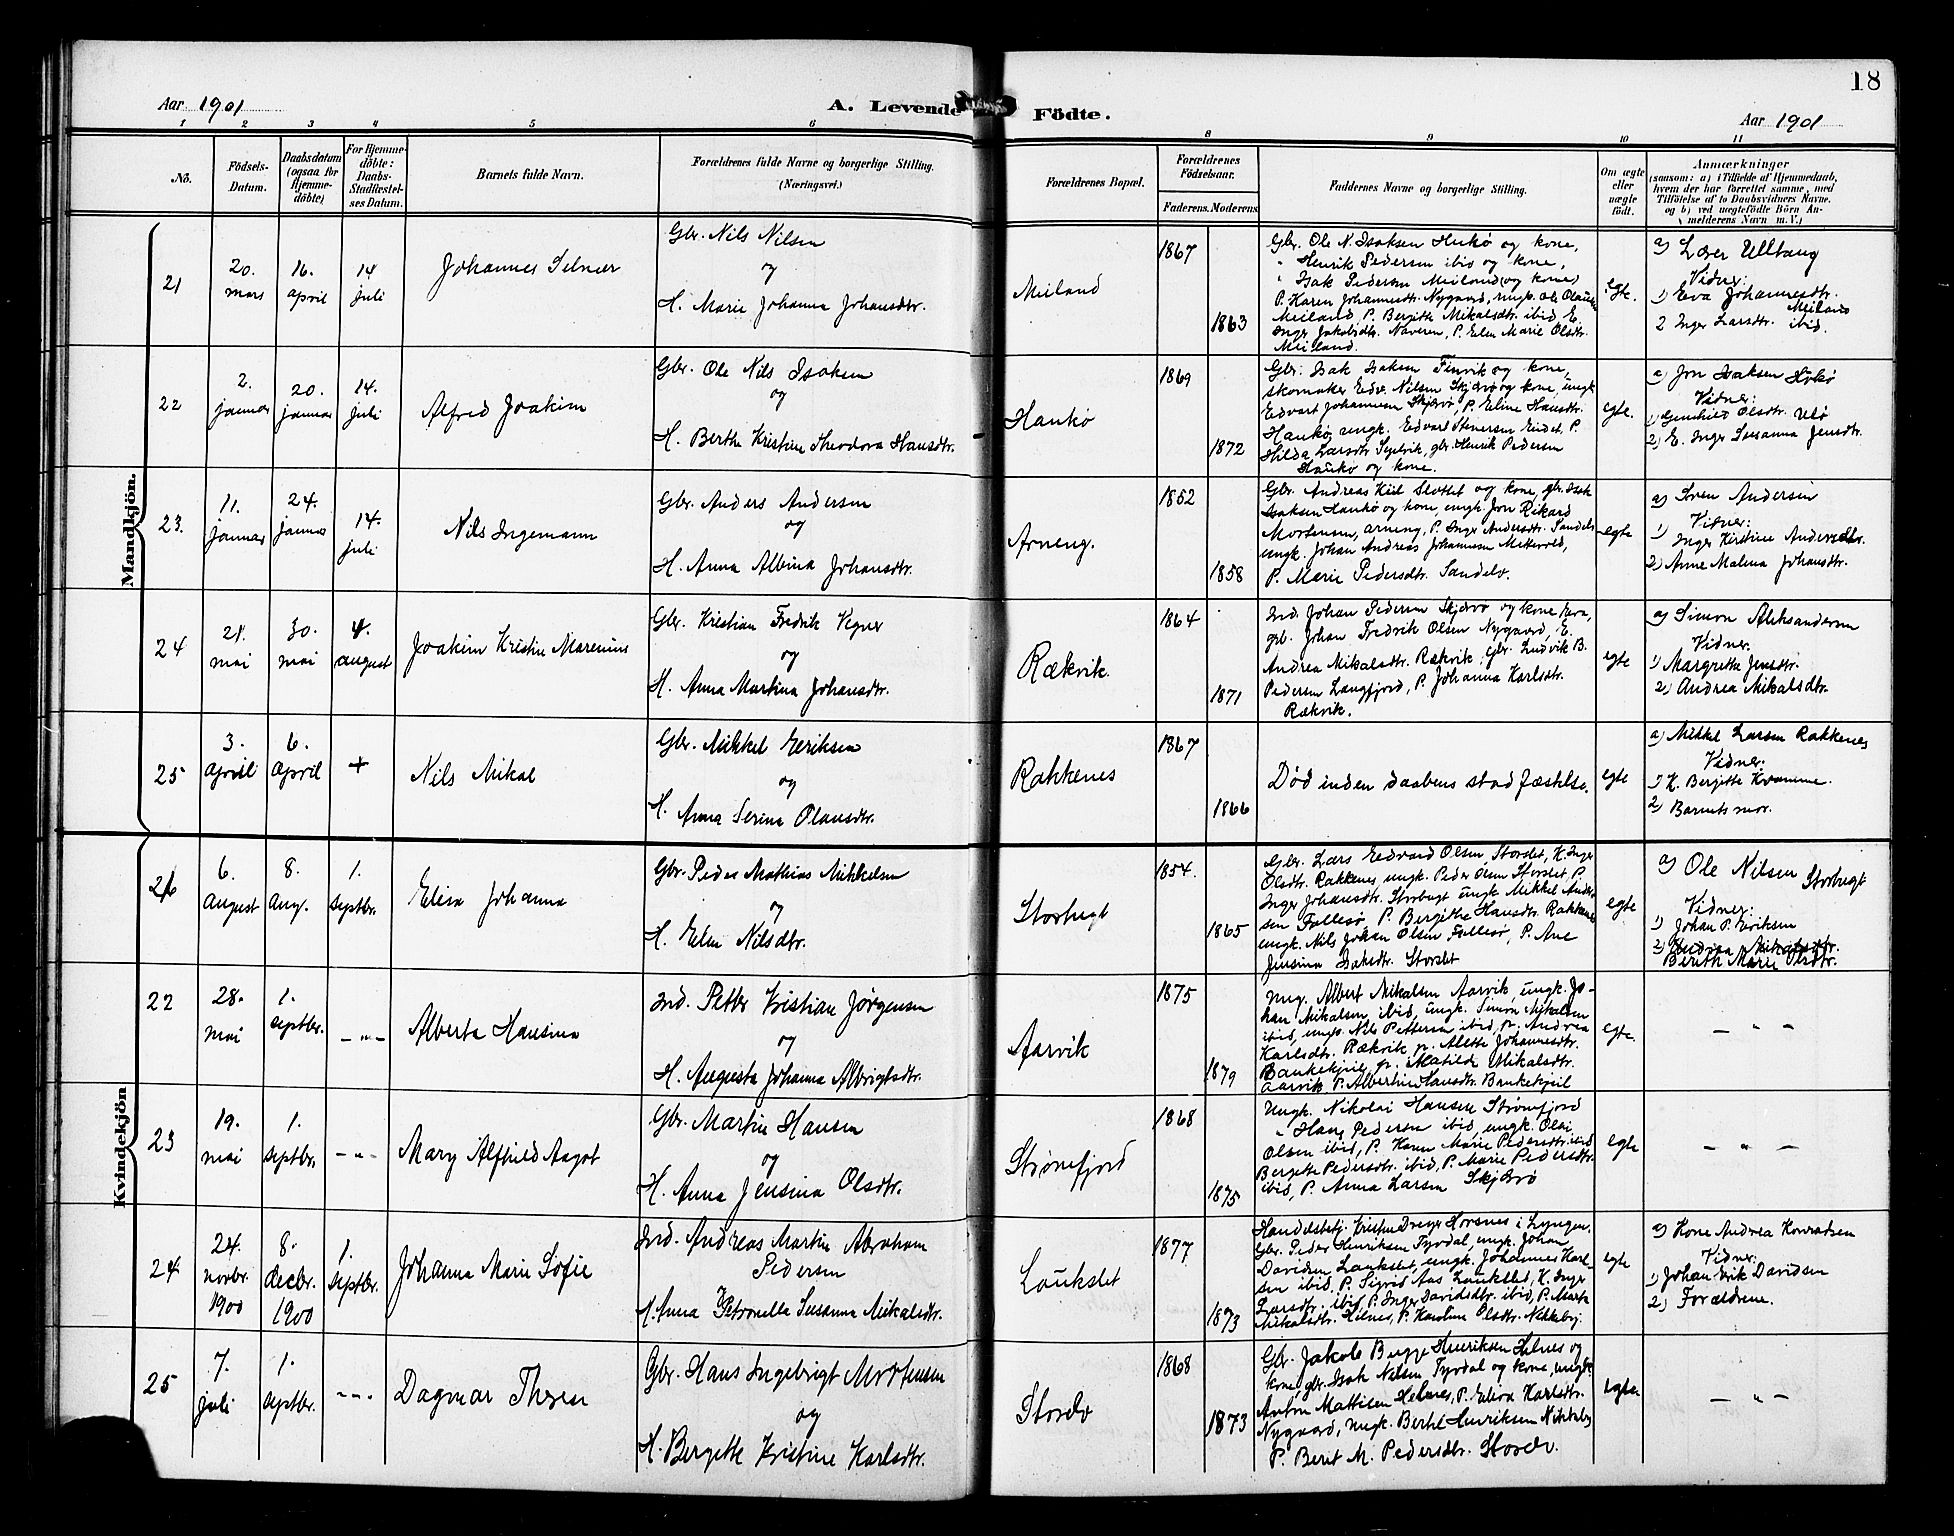 18
Aar 1901
A. Levende Födte.
Aar 1901
1 2 3 4 5 6 8 9 10 11
No.
Födsels-
Datum.
Daabsdatum
(ogsaa for
Hjemme-
döbte)
For Hjemme-
döbte:
Daabs-
Stadfæstel-
ses Datum.
Barnets fulde Navn.
Forældrenes fulde Navne og borgerlige Stilling.
(Næringsvei.)
Forældrenes Bopæl.
Forældrenes
Födselsaar.
Faderens. Moderens.
Faddernes Navne og borgerlige Stilling.
Om ægte
eller
uægte
födt.
Anmærkninger
(saasom: a) i Tilfælde af Hjemmedaab,
hvem der har forrettet samme, med
Tilföielse af to Daabsvidners Navne.
og b) ved uægtefödte Börn An-
melderens Navn m. V.)
Mandkjön.
21
20.
mars
16.
april
14
juli
Johannes Selmer
Gbr. Nils Nilsen
og
H. Marie Johanna Johansdtr.
Meiland
1867
1863
Gbr. Ole N. Isaksen Haukø og kone,
" Henrik Pedersen ibid og kone,
" Isak Pedersen Meiland (og kone)
P. Karen Johannesdtr. Nygaard, ungk. Ole Olausen
Meiland P. Bergitte Mikalsdtr. ibid E.
Inger Jakobsdtr. Naveren, P. Elen Marie Olsdtr.
Meiland.
egte.
a) Lærer Ulltang
Vidner:
1) Eva Johannesdtr.
Meiland
2 Inger Larsdtr. ibid.
22
2.
januar
20.
januar
14.
juli
Alfred Joakim
Gbr. Ole Nils Isaksen
og
H. Berthe Kristine Theodora Hansdtr.
Haukø
1869
1872
Gbr. Isak Isaksen Finvik og kone,
skomaker Edv. Nilsen Skjærvø og kone, ungk
Edvart Johannesen Skjærvø, P. Eline Hansdtr.
Haukø, ungk. Edvart Stenersen Eidet, P.
Hilda Larsdtr. , gbr. Henrik Pedersen
Haukø og kone.
egte.
a) Jon Isaksen
Vidner:
1) Olsdtr. Ulø
2) E. Inger Susanna Jensdtr.
23.
11.
januar
24.
januar
14.
juli
Nils Ingemann
Gbr. Anders Andersen
og
H. Anna Albina Johansdtr.
Arneng.
1852
1858
Gbr. Andreas Kiil Slottet og kone, gbr. Isak
Isaksen Haukø og kone, ungk. Jon Rikard
Mortensen, Arneng, P. Inger Andersdtr. Sandelv
ungk. Johan Andreas Johannesen ,
P. Marie Pedersdtr. Sandelv.
egte
a) Sven Andersen
Vidner:
1)
Inger Kirstine Andersdtr.
2) Anne Malena Johansdtr.
24
21.
mai
30.
mai
4.
august
Joakim Kristin Marenius
Gbr. Kristian Fredrik Vegner
og
H. Anna Martina Johansdtr.
Rækvik.
1864
1871
Ind. Johan Pedersen Skjærvø og kone Eva,
gbr. Johan Fredrik Olsen Nygaard, E.
Andrea Mikalsdtr. Rækvik, gbr. Ludvik B.
Pedersen Langfjord, P. Johanna Karlsdtr.
Rækvik.
egte
a) Simon Aleksandersen
Vidner:
1) Margrethe Jensdtr.
2) Andrea Mikalsdtr.
25
3.
april
6.
april
+
Nils Mikal
Gbr. Mikkel Eriksen
og
H. Anna Serina Olausdtr.
Rakkenes
1867
1866
Død inden daabens stadfæstelse.
egte
a) Mikkel Larsen Rakkenes
Vidner:
1) K. Bergitte Kvamme.
2) Barnets mor.
Kvindekjön
21
6.
august
8.
aug.
1.
septbr.
Elisa Johanna
Gbr. Peder Mathias Mikkelsen
og
H. Elen Nilsdtr.
Storbugt
1854.
1865
Gbr. Lars Edvard Olsen, Storslet, H. Inger
Olsdtr. Rakkenes, ungk. Peder Olsen Storslet, P.
Inger Johansdtr. Storbugt ungk Mikkel Ander-
sen Follesø, P. Bergithe Hansdtr. Rakkenes
ungk. Nils Johan Olsen Follesø, P. Ane
Jensina Isaksdtr. Storslet
egte
a) Ole Nilsen Storbugt
Vidner:
1) Johan P. Eriksen
2) Andrea Mikalsdtr.
Berith Marie Olsdtr.
22
28.
mai
1.
septbr.
– " –
Alberta Hansina
Ind. Petter Kristian Jörgensen
og
H. Augusta Johanna Albrigtsdtr.
Aarvik
1875
1879
Ungk. Albert Mikalsen Aarvik, ungk. Jo-
han Mikalsen ibid, ungk. Simon Mikalsen
ibid, ungk. Nils Pettersen ibid, p. Andrea
Karlsdtr. Rækvik, p. Alette Johannesdtr.
Bankekjeil, p. Matilde Mikalsdtr.
Aarvik P. Albertine Hansdtr. Bankekjeil
egte.
– " –
23
19.
mai
1.
septbr.
– " –
Mary Alfhild Aagot
Gbr. Martin Hansen
og
H. Anna Jensina Olsdtr.
Strømfjord
1868
1875
Ungk. Nikolai Hansen Strømfjord
" Hans Pedersen ibid, ungk. Olai
Olsen ibid, P. Karen Marie Pedersdtr. ibid
Bergette Pedersdtr. ibid, P. Marie Pedersdtr.
ibid, P. Anna Larsen Skjærvø
egte
– " –
24
24.
novbr.
1900
8.
decbr.
1900
1.
septbr.
Johanna Marie Sofie
Ind. Andreas Martin Abraham
Pedersen
og
H. Anna Petronella Susanna Mikalsdtr.
Laukslet
1877
1873
Handelsbetj. Kristen Dreyer Horsnes i Lyngen,
Gbr. Peder Henriksen Tyvdal, ungk. Johan
Davidsen Laukslet, ungk. Johannes Karl-
sen ibid. P. Sigrid Aas Laukslet, H. Inger
Larsdtr. ibid, P. Inger Davidsdtr. ibid, P. Marta
Mikalsdtr. Helnes, P. Karoline Olsdtr. Nikkeby.
egte
a) Kone Andrea Konradsen
Vidner:
1) Johan Erik Davidsen
2) Forældrene.
25
7.
juli
1.
septbr.
– " –
Dagmar Theresa
Gbr. Hans Ingebrigt Mortensen
og
H. Bergette Kristine Karlsdtr.
Storelv
1868
1873
Gbr. Jakob Bugge Henriksen Helnes og
kone, gbr. Isak Nilsen Tyvdal og kone, ungk.
Anton Mathisen Helnes, P. Elisa Karlsdtr.
Nygaard, ungk. Berthel Henriksen Nikkeby
P. Beret M. Pedersdtr. Storelv.
egte
– " –